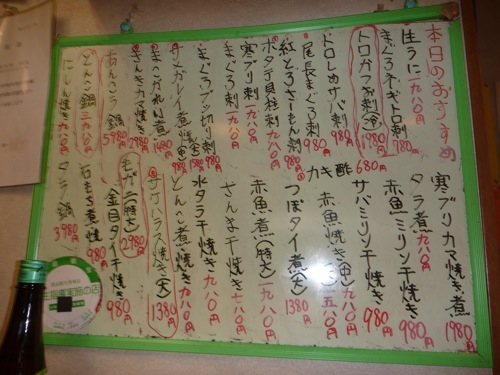 本日のおすすめ
生うに 九八〇円
まぐろネギトロ刺 980円
トロかつお刺(冷) 1980円
トロしめサバ刺 980円
尾長まぐろ刺 980円
紅とろさーもん刺 980円
ホタテ貝柱刺 九八〇円
寒ブリ刺 一九八〇円
まぐろ刺 一九八〇円
まぐろブツ切り刺 980円
サメガレイ煮焼き(中) 1580円
まこがれい煮 1480円
さんきカマ焼き 980円
あんこう鍋 2980円
どんこ鍋 二九八〇円
にしん焼き 九八〇円
カキ酢 680円
寒ブリカマ焼き煮 1980円
タラ煮 九八〇円
赤魚ミリン干焼き 980円
サバミリン干焼き 980円
赤魚焼き(中) 九八〇円
(大) 一五八〇円
つぼタイ煮(大) 1380円
赤魚煮(特大) 一九八〇円
さんま干焼き 七八〇円
水タラ干焼き 九八〇円
どんこ煮焼き 九八〇円
サケハラス焼き(大) 1380円
毛ガニ(特大) 2980円
金目タイ干焼き 980円
石もち煮焼き 980円
タラ鍋 3980円